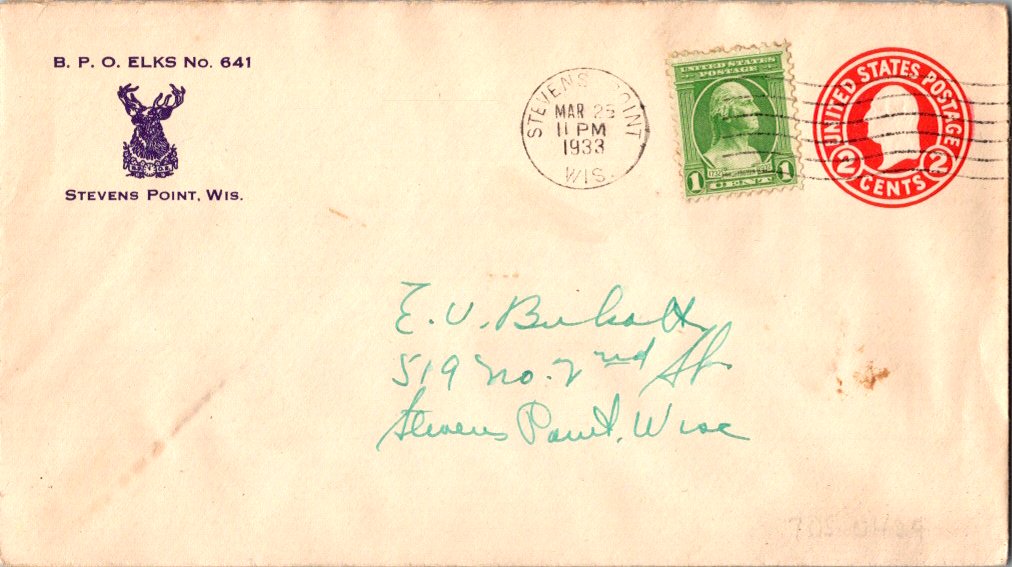 B. P. O. ELKS No. 641
STEVENS POINT, WIS.
STEVENS POINT
MAR 25
11 PM
1933
WIS.
UNITED STATES
POSTAGE
1 1
CENT
UNITED STATES POSTAGE
2 2
CENTS
E. V.
519 No. 2nd St.
Stevens Point, Wisc